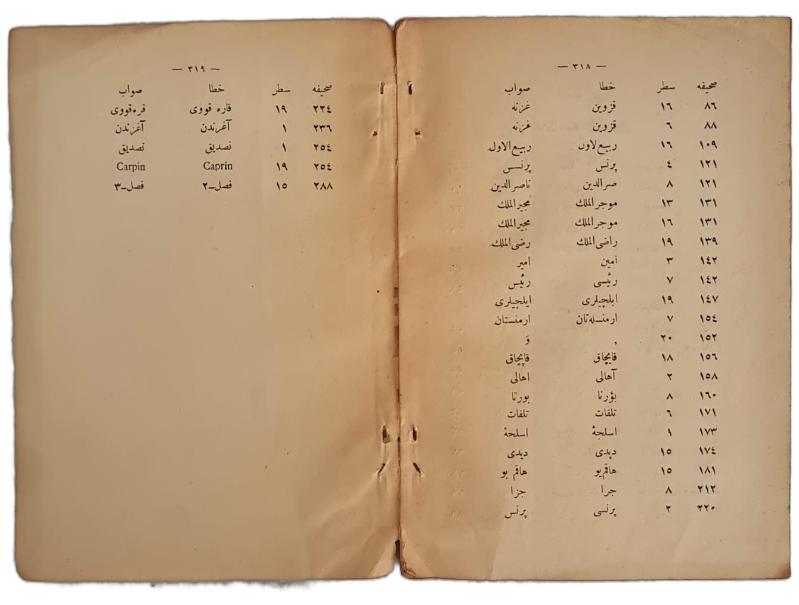 — ٣١٨ —
صحيفه سطر خطا صواب
٨٦ ١٦ قزوين غزنه
٨٨ ٦ قزوين غزنه
١٠٩ ١٦ ربيع لاول ربيع الاول
١٢١ ٤ پرنس پرنسس
١٢١ ٨ صرالدين ناصرالدين
١٣١ ١٣ موجرالملك مجيرالملك
١٣١ ١٦ موجرالملك مجيرالملك
١٣٩ ١٩ راضى الملك رضى الملك
١٤٢ ٣ امين امير
١٤٢ ٧ رئيسى رئيس
١٤٧ ١٩ ايلچيلرى
١٥٤ ٧ ارمنسله‌تان ارمنستان
١٥٢ ٢٠ و
١٥٦ ١٨ قابچاق قاپچاق
١٥٨ ٢ آهالى اهالى
١٦٠ ٨ بؤرنا بورنا
١٧١ ٦ تلفات تلفات
١٧٣ ١ اسلجۀ اسلحۀ
١٧٤ ١٥ ديدى ديدى
١٨١ ١٥ هاقميو هاقم بو
٢١٢ ٨ جرا جزا
٢٢٠ ٢ پرنسى پرنس
— ٣١٩ —
صحيفه سطر خطا صواب
٢٢٤ ١٩ قاره قووى قره‌قووى
٢٣٦ ١ آغرندن آغزندن
٢٥٤ ١ تصديق
٢٥٤ ١٩ Caprin Carpin
٢٨٨ ١٥ فصل-٢ فصل-٣